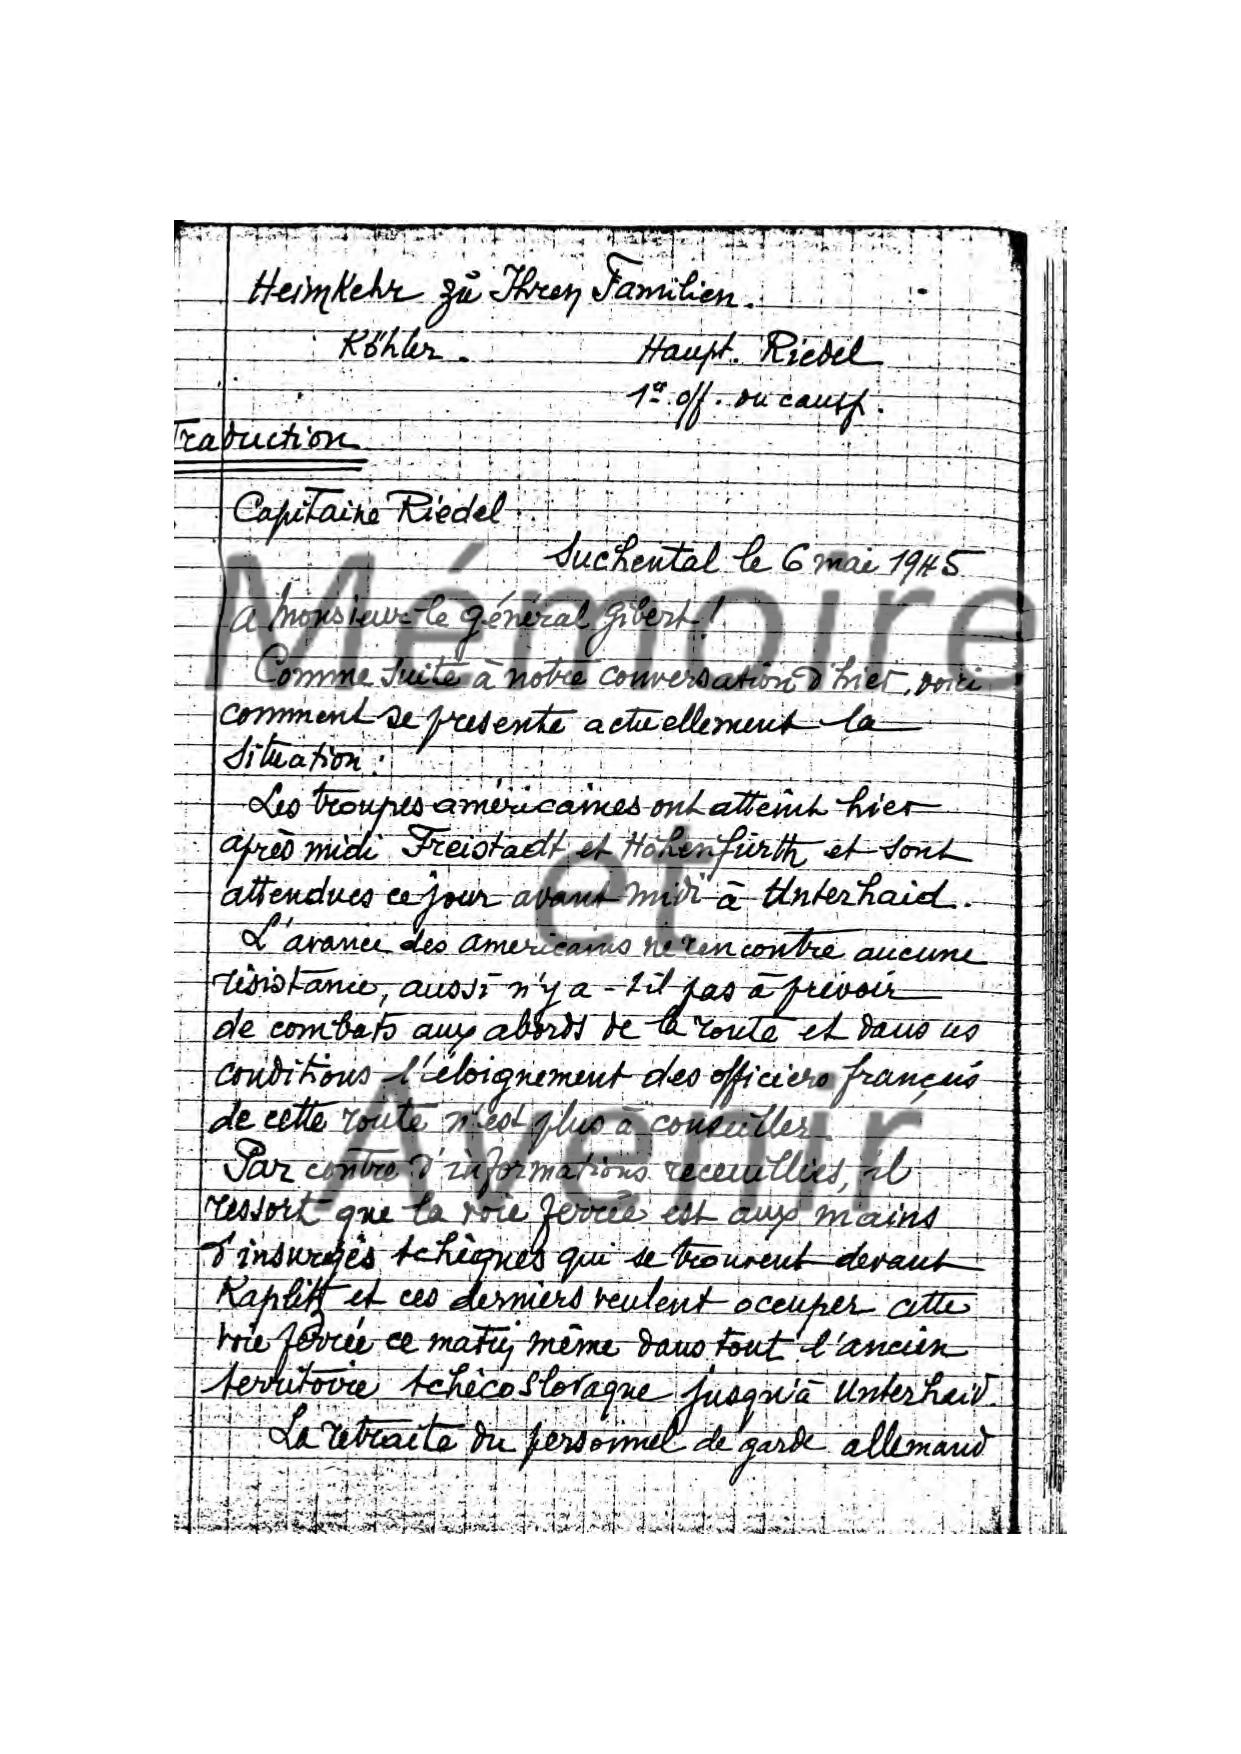 Heimkehr zu Ihren Familien.
Köhler.
Haupt. Riedel
1er off. du camp.
Traduction
Capitaine Riedel
Suchental le 6 mai 1945
a monsieur le général Gibert!
Comme suite à notre conversation d'hier, voici
comment se présente actuellement la
situation:
Les troupes américaines ont atteint hier
après midi Freistadt et Hohenfürth et sont
attendues ce jour avant midi à Unterhaid.
L'avance des américains ne rencontre aucune
résistance, aussi n'y a-t-il pas à prévoir
de combats aux abords de la route et dans ces
conditions l'éloignement des officiers français
de cette route n'est plus à conseiller.
Par contre d'informations receuillies, il
ressort que la voie ferrée est aux mains
d'insurgés tchèques qui se trouvent devant
Kaplitz et ces derniers veulent occuper cette
voie ferrée ce matin même dans tout l'ancien
territoire tchécoslovaque jusqu'à Unterhaid.
La retraite du personnel de garde allemand
Mémoire
et
Avenir